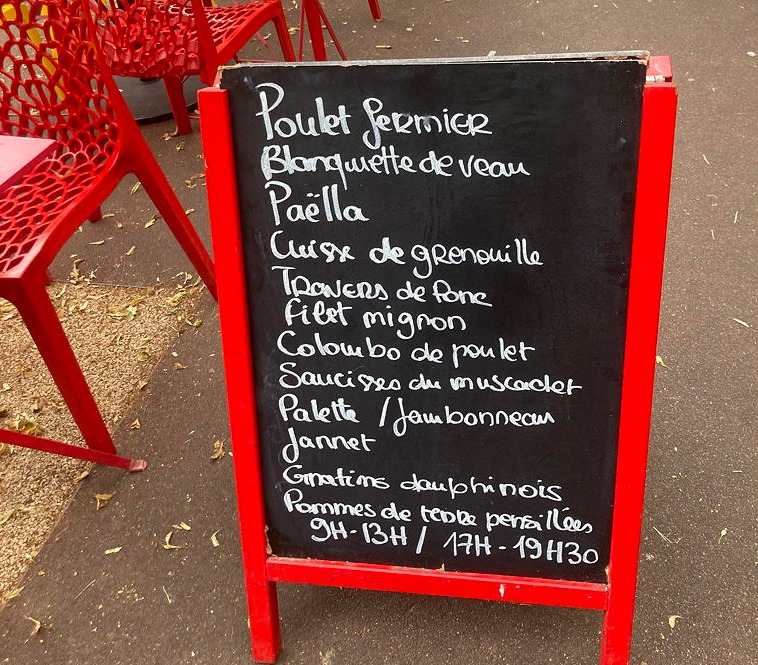 Poulet fermier
Blanquette de veau
Paëlla
Cuisse de grenouille
Travers de Porc
filet mignon
Colombo de poulet
Saucisses au muscadet
Palette / Jambonneau
Jarret
Gratins dauphinois
Pommes de terre persillées
9H-13H / 17H-19H30